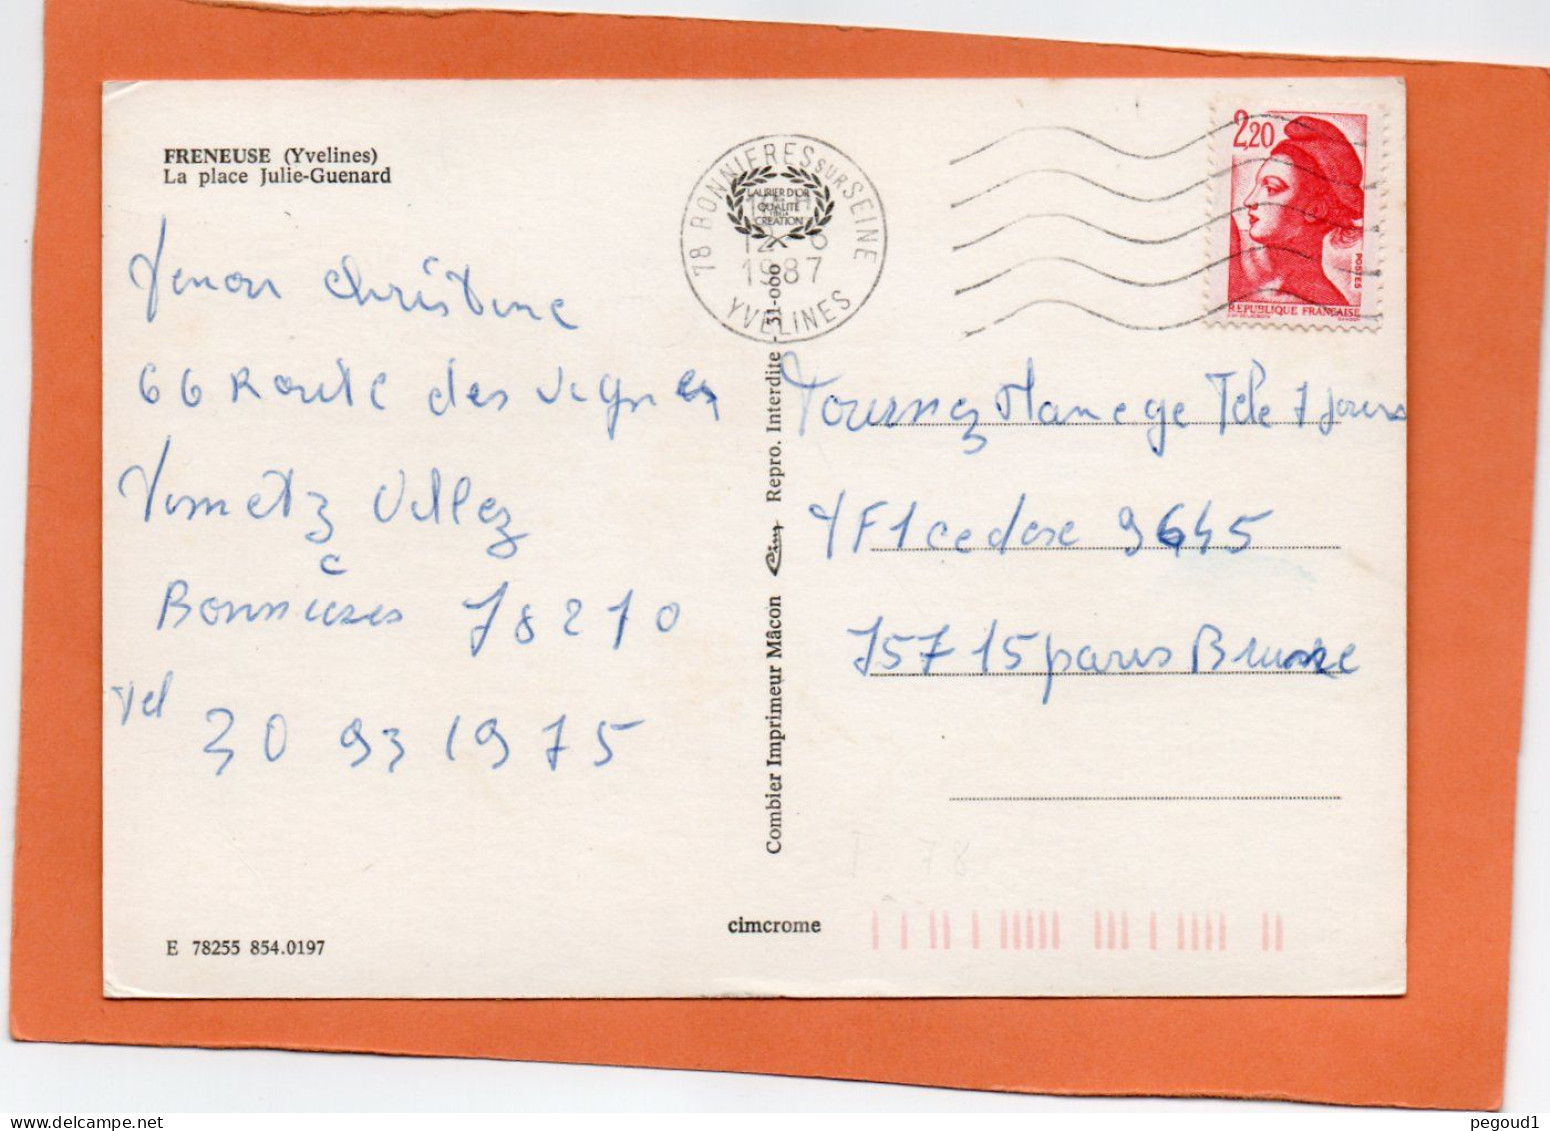 FRENEUSE (Yvelines)
La place Julie-Guenard
Venon Christine
66 Route des Vignes
Vimetz Villez
Bonnières 78270
Tel
30 93 19 75
78 BONNIERES SUR SEINE
12 - 6
1987
YVELINES
LAURIER D'OR
DE LA
QUALITÉ
CRÉATION
2,20
POSTES
REPUBLIQUE FRANÇAISE
Combier Imprimeur Mâcon Cim Repro. Interdite - 31-000
Tournez Manege Tele 7 Jours
TF1 cedex 9645
75715 paris Brune
T 78
cimcrome
E 78255 854.0197
pegoud1